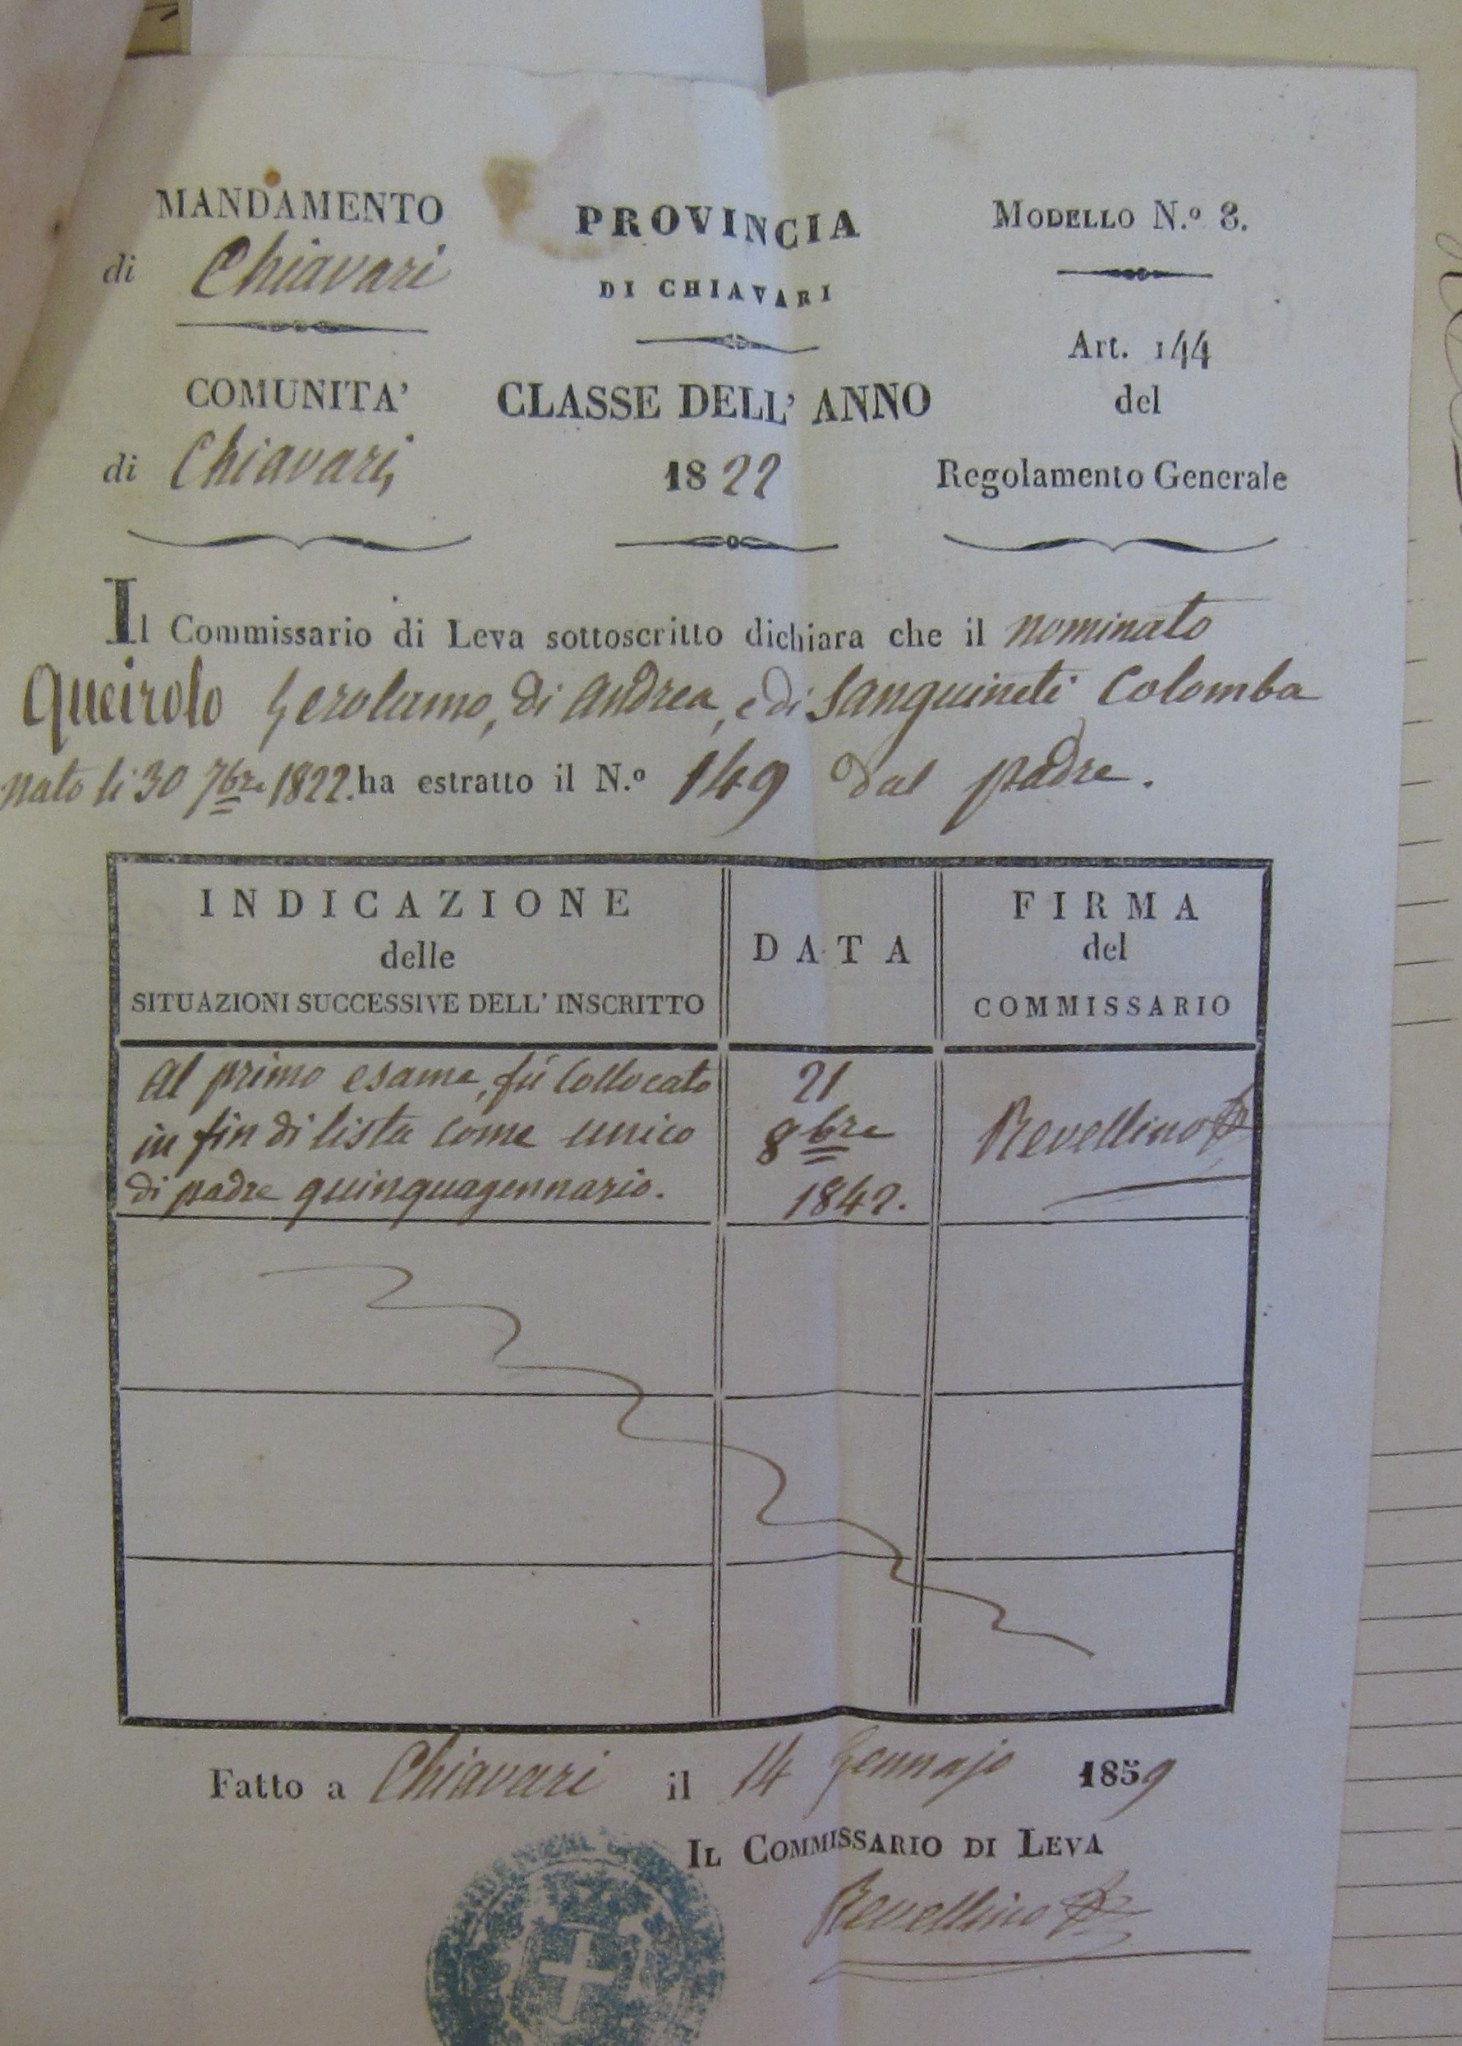 MANDAMENTO
di Chiavari
COMUNITA'
di Chiavari
PROVINCIA
DI CHIAVARI
CLASSE DELL' ANNO
1822
MODELLO N.º 8.
Art. 144
del
Regolamento Generale
Il Commissario di Leva sottoscritto dichiara che il nominato
Queirolo Gerolamo, di Andrea, e di Sanguineti Colomba
nato li 30 7bre 1822. ha estratto il N.º 149 dal padre.
INDICAZIONE
delle
SITUAZIONI SUCCESSIVE DELL' INSCRITTO
DATA
FIRMA
del
COMMISSARIO
Al primo esame, fù Collocato
in fin di lista come unico
di padre quinquagennario.
21
8bre
1842.
Revellino
Fatto a Chiavari il 14 Gennajo 1859
IL COMMISSARIO DI LEVA
Revellino